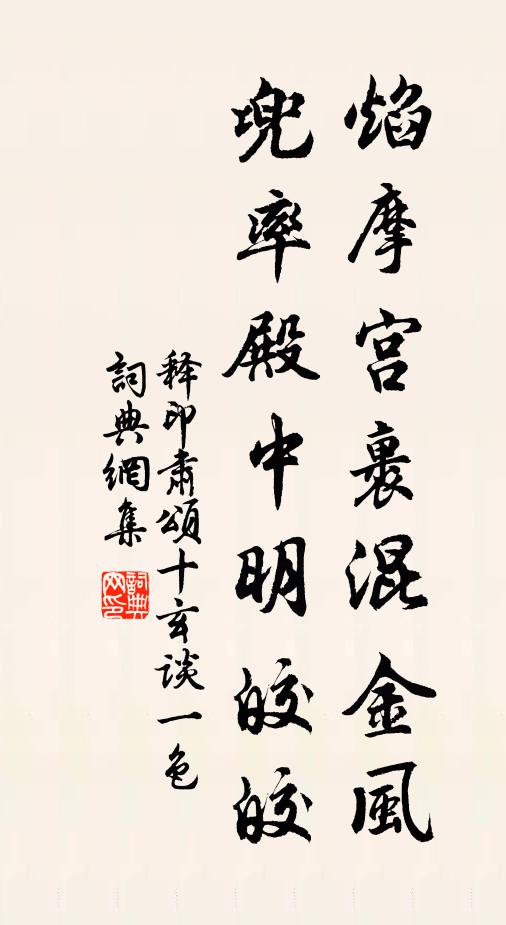 焰摩宫裹混金風
兜率殿中明皎皎
释印肃頌十玄談一色
詞典網集
詞典网印